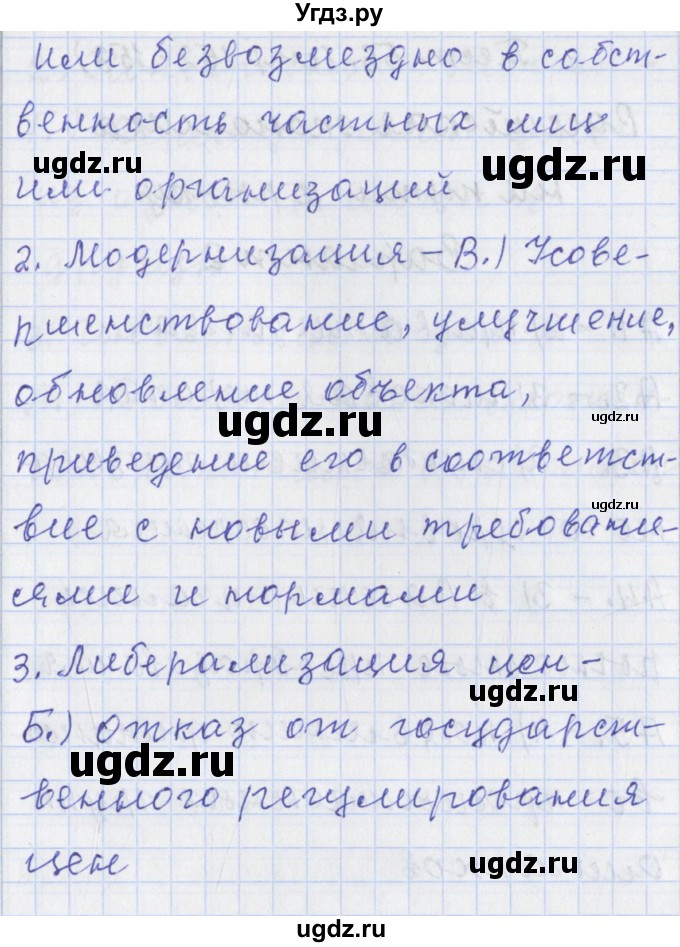 Угдз.ру
или безвозмездно в собст-
венность частных лиц
ugdz.ru ugdz.ru
или организаций
2. Модернизация - В.) Усове-
ршенствование, улучшение,
обновление объекта,
ugdz.ru ugdz.ru
приведение его в соответст-
вие с новыми требовани-
ugdz.ru
ями и нормами
3. Либерализация цен -
ugdz.ru
Б.) отказ от государст-
ugdz.ru
венного регулирования
цен
ugdz.ru
ugdz.ru